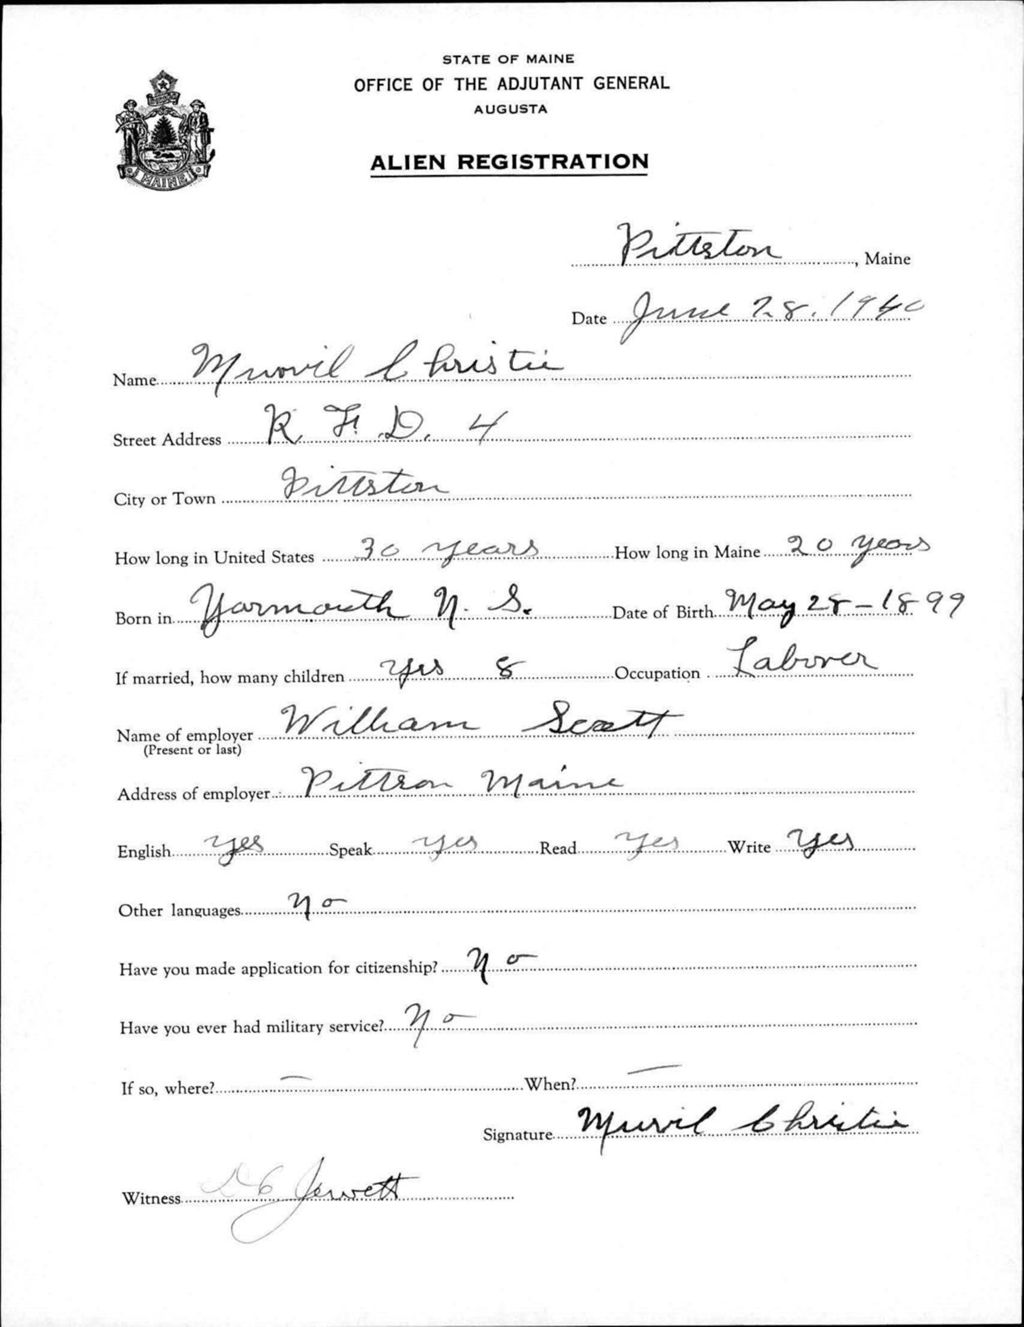 STATE OF MAINE
OFFICE OF THE ADJUTANT GENERAL
AUGUSTA
ALIEN REGISTRATION
MAINE
Pittston, Maine
Date June 28, 1940
Name Murvil Christie
Street Address R. F. D. 4
City or Town Pittston
How long in United States 30 years How long in Maine 20 years
Born in Yarmouth N. S. Date of Birth May 28-1899
If married, how many children Yes 8 Occupation Laborer
Name of employer William Scott
(Present or last)
Address of employer Pittston Maine
English yes Speak yes Read yes Write yes
Other languages No
Have you made application for citizenship? No
Have you ever had military service? No
If so, where? — When? —
Signature Murvil Christie
Witness Jewett